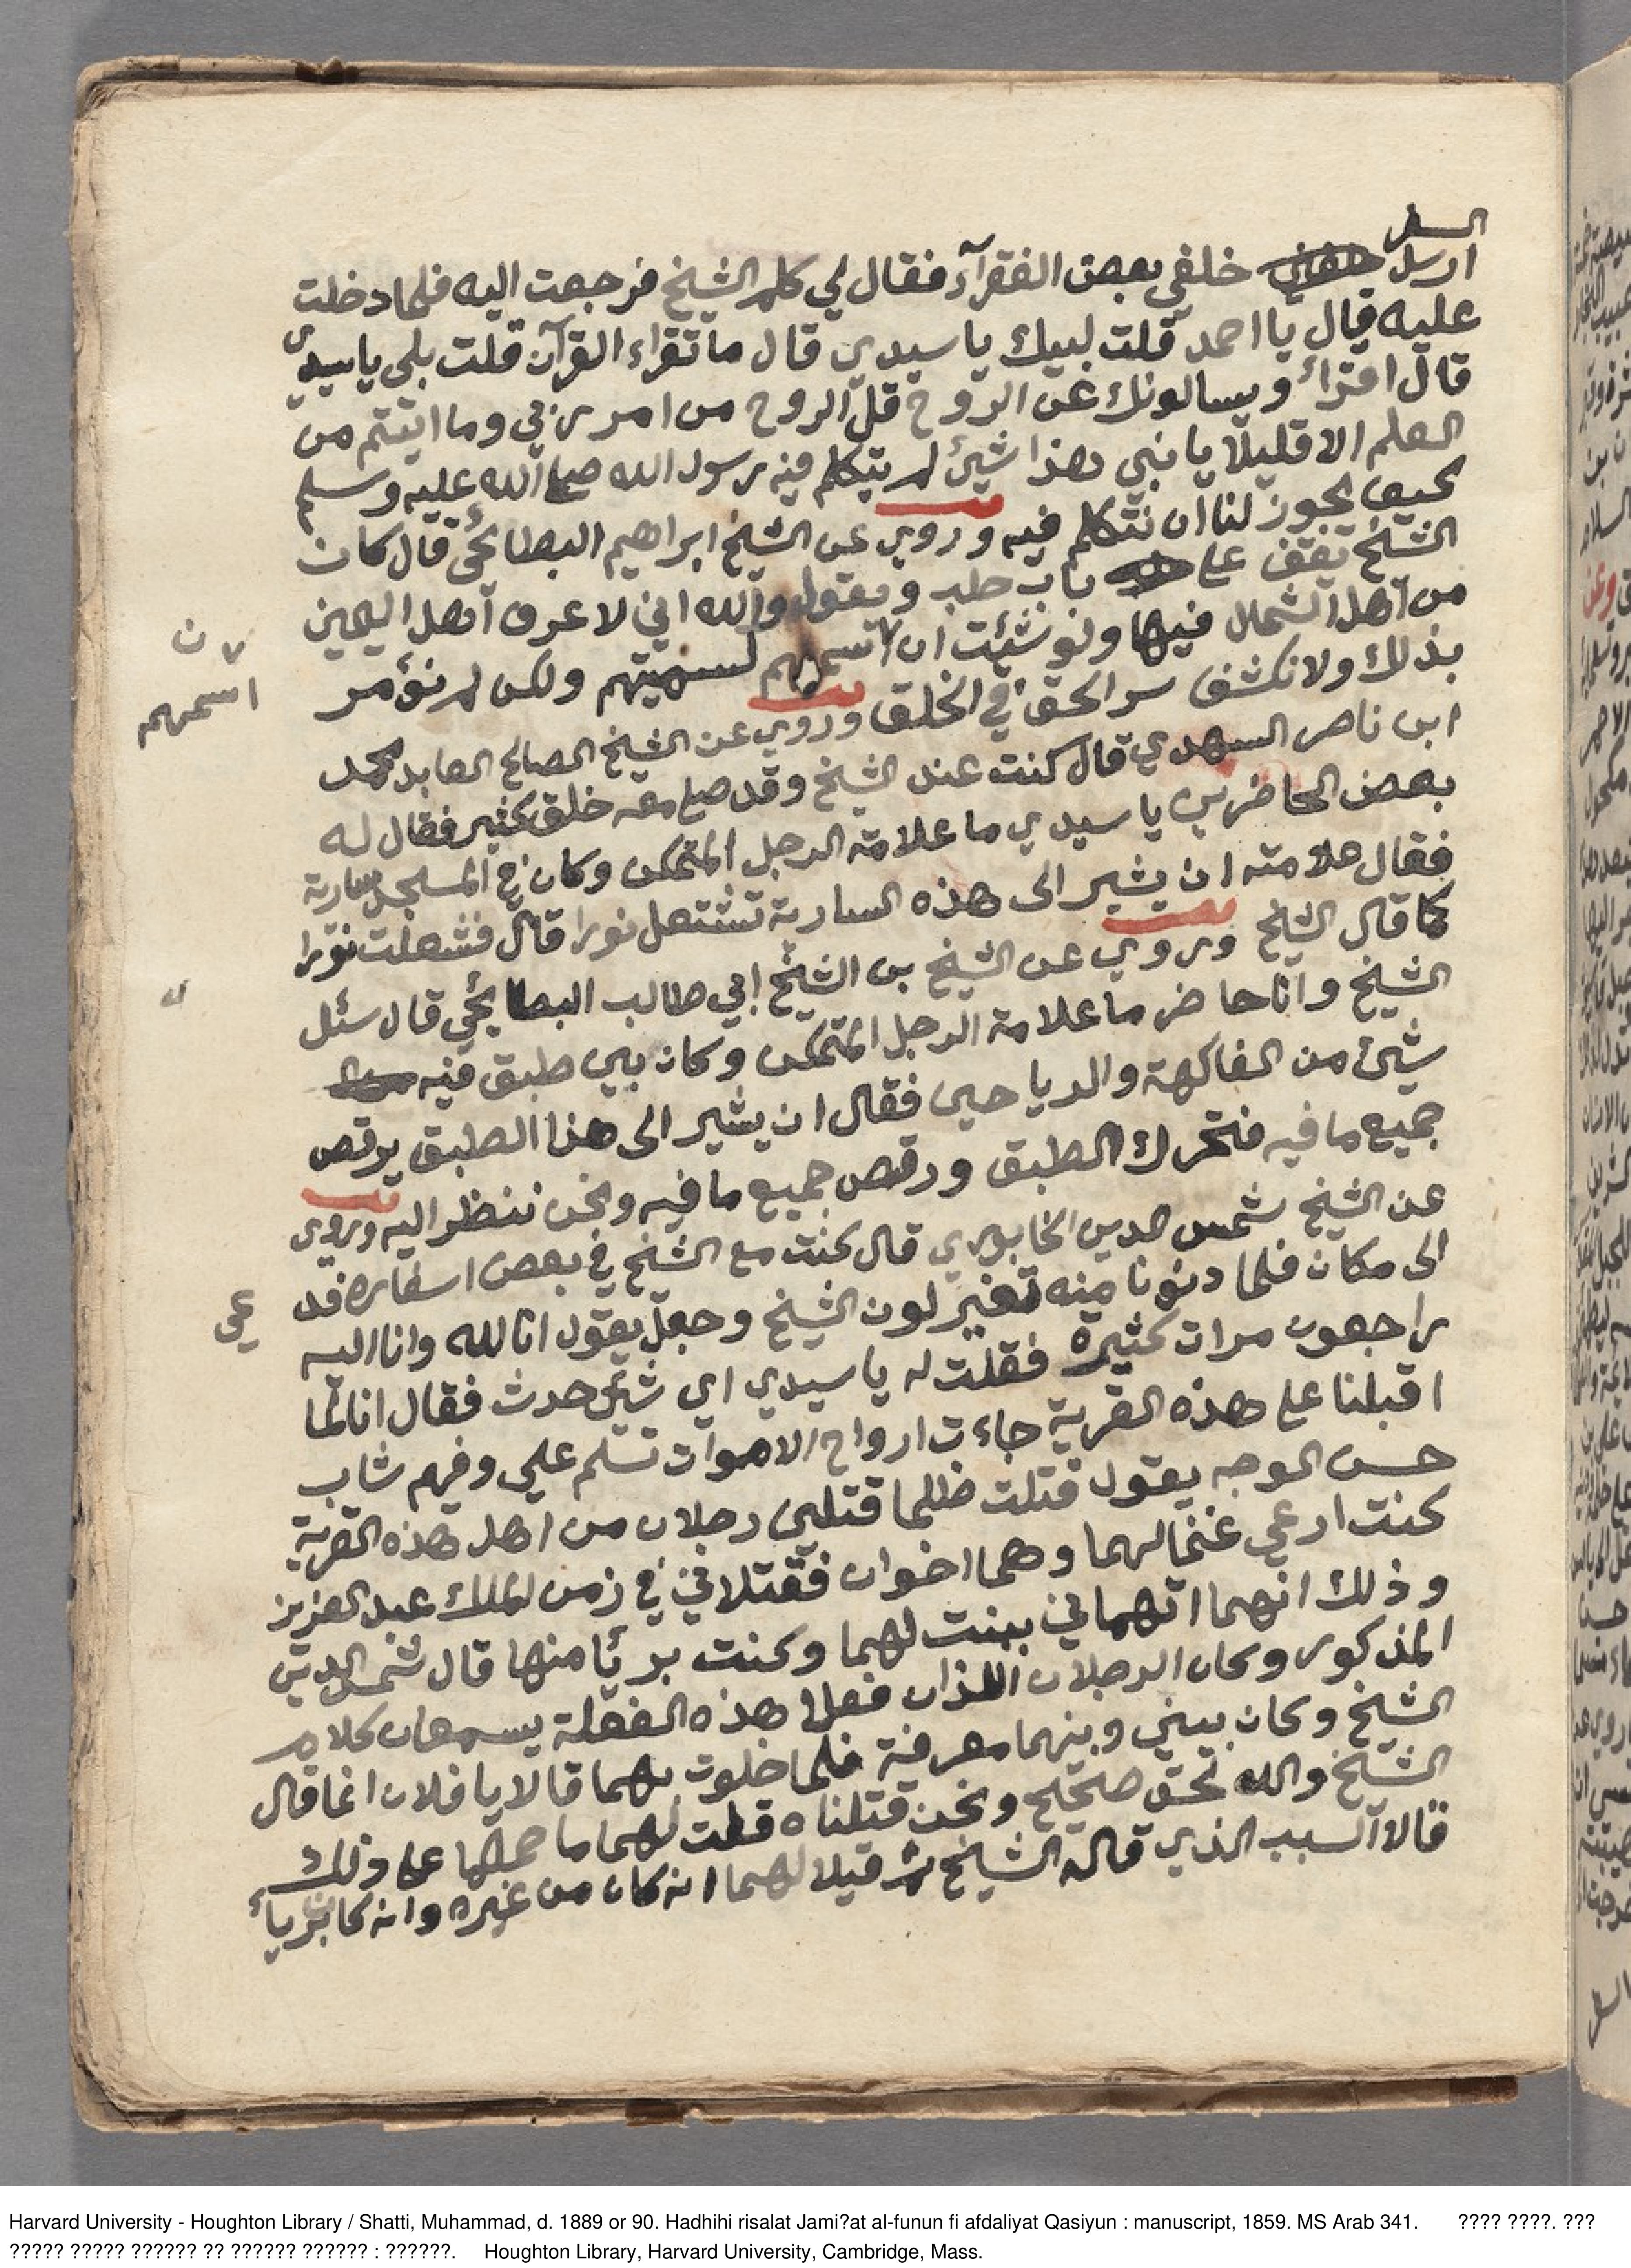 السفر
ارسل خلفي بعض الفقرآء فقال لي كلم الشيخ فرجعت اليه فلما دخلت
عليه قال يا احمد قلت لبيك يا سيدي قال ما تقراء القرآن قلت بلى يا سيدي
قال اقراء ويسالونك عن الروح قل الروح من امر ربي وما اتيتم من
العلم الا قليلا يا بني هذا شيئ لم يتكلم فيه رسول الله صلى الله عليه وسلم
كيف يجوز لنا ان نتكلم فيه وروي عن الشيخ ابراهيم البطائحي قال كان
الشيخ يقف على باب حلب ويقول والله اني لا عرف اهل اليمين
من اهل الشمال فيها ولو شئت ان اسمهم لسميتهم ولكن لم نؤمر
بذلك ولا نكشف سر الحق في الخلق وروي عن الشيخ الصالح العابد محمد
ابن ناصر السهدي قال كنت عند الشيخ وقد صلى معه خلق كثير فقال له
بعض الحاضرين يا سيدي ما علامة الرجل المتمكن وكان في المسجد سارية
فقال علامته ان يشير الى هذه السارية تشتعل نورا قال فشعلت نورا
كما قال الشيخ وروي عن الشيخ بن الشيخ ابي طالب البطايحي قال سئل
الشيخ وانا حاضر ما علامة الرجل المتمكن وكان بين طبق فيه
شيئ من الفاكهة والرياحين فقال ان يشير الى هذا الطبق يرقص
جميع ما فيه فتحرك الطبق ورقص جميع ما فيه ونحن ننظر اليه وروي
عن الشيخ شمس الدين الخابوري قال كنت مع الشيخ في بعض اسفاره فد
الى مكان فلما دنونا منه تغير لون الشيخ وجعل يقول انا لله وانا اليه
راجعون مرات كثيرة فقلت له يا سيدي اي شيئ حدث فقال انا لما
اقبلنا على هذه القرية جاءت ارواح الاموات تسلم علي وفيهم شاب
حسن الوجه يقول قتلت ظلما قتلني رجلان من اهل هذه القرية
كنت ارعى غنما لهما وهما اخوان فقتلاني في زمن الملك عبد العزيز
وذلك انهما اتهماني ببنت لهما وكنت بريًا منها قال شمس الدين
المذكور وكان الرجلان اللذان فعلا هذه الفعلة يسمعان كلام
الشيخ وكان بيني وبينهما معرفة فلما خلوت بهما قالا يا فلان انما قال
الشيخ والله لحق صحيح ونحن قتلناه فقلت لهما ما حملكما على ذلك
قالا السبب الذي قاله الشيخ ثم قيلا لهما انه كان من غيره وانه كان بريأ
ن
اسمهم
عى
Harvard University - Houghton Library / Shatti, Muhammad, d. 1889 or 90. Hadhihi risalat Jami?at al-funun fi afdaliyat Qasiyun : manuscript, 1859. MS Arab 341. ???? ????. ???
????? ????? ?????? ?? ?????? ?????? : ??????. Houghton Library, Harvard University, Cambridge, Mass.